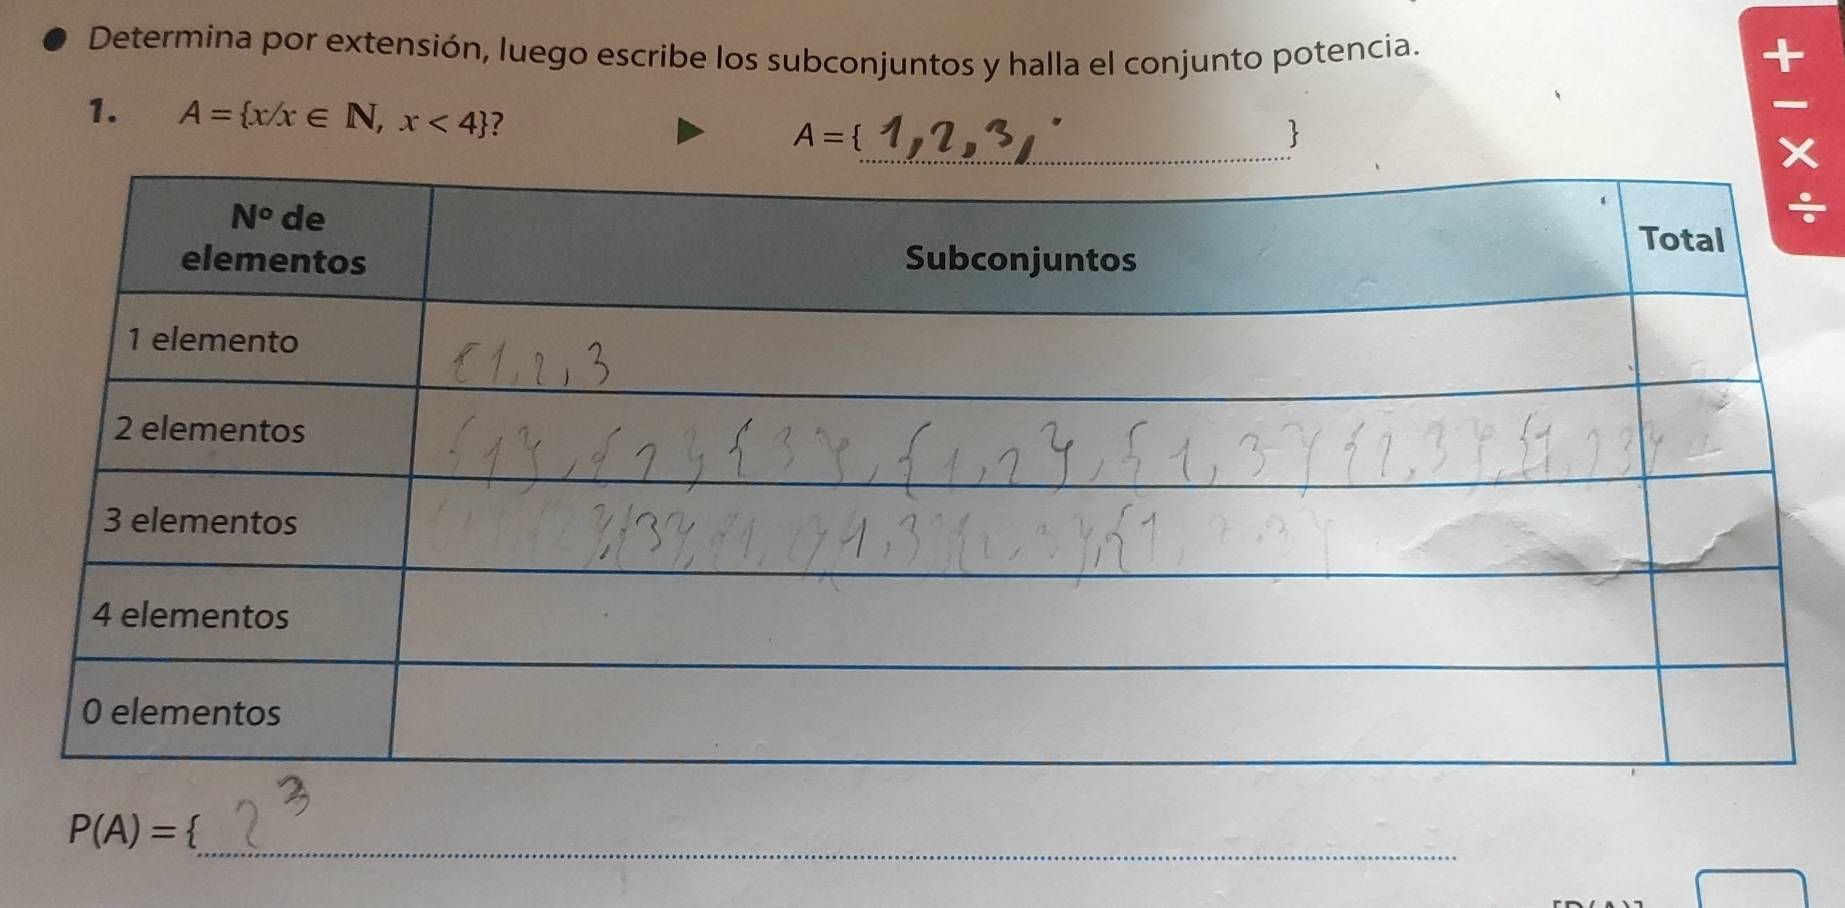 Determina por extensión, luego escribe los subconjuntos y halla el conjunto potencia.
1. A = {x/x ∈ ℕ, x < 4}?
A = { 1, 2, 3, }
Nº de elementos
Subconjuntos
Total
1 elemento
{1, 2, 3
2 elementos
{1}, {2} {3}, {1, 2}, {1, 3} {2, 3}, {1, 2 3}
3 elementos
}, {3}, {1, 2}, 1, 3} {2, 3}, {1, 2, 3}
4 elementos
0 elementos
P(A) = { 2³
+
−
×
÷